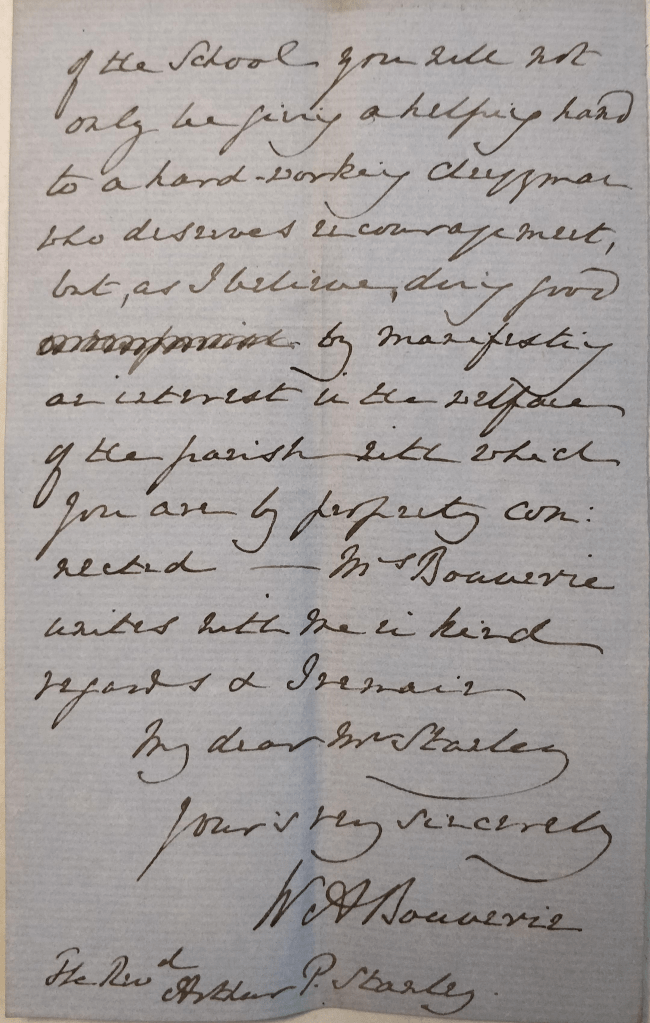 of the School you will not
only be giving a helping hand
to a hard-working clergyman
who deserves encouragement,
but, as I believe, doing good
by manifesting
an interest in the welfare
of the parish with which
you are by property con:
nected — Mrs Bouverie
unites with me in kind
regards & I remain
My dear Mr Stanley
Your's very sincerely
W A Bouverie
The Revd Arthur P. Stanley.